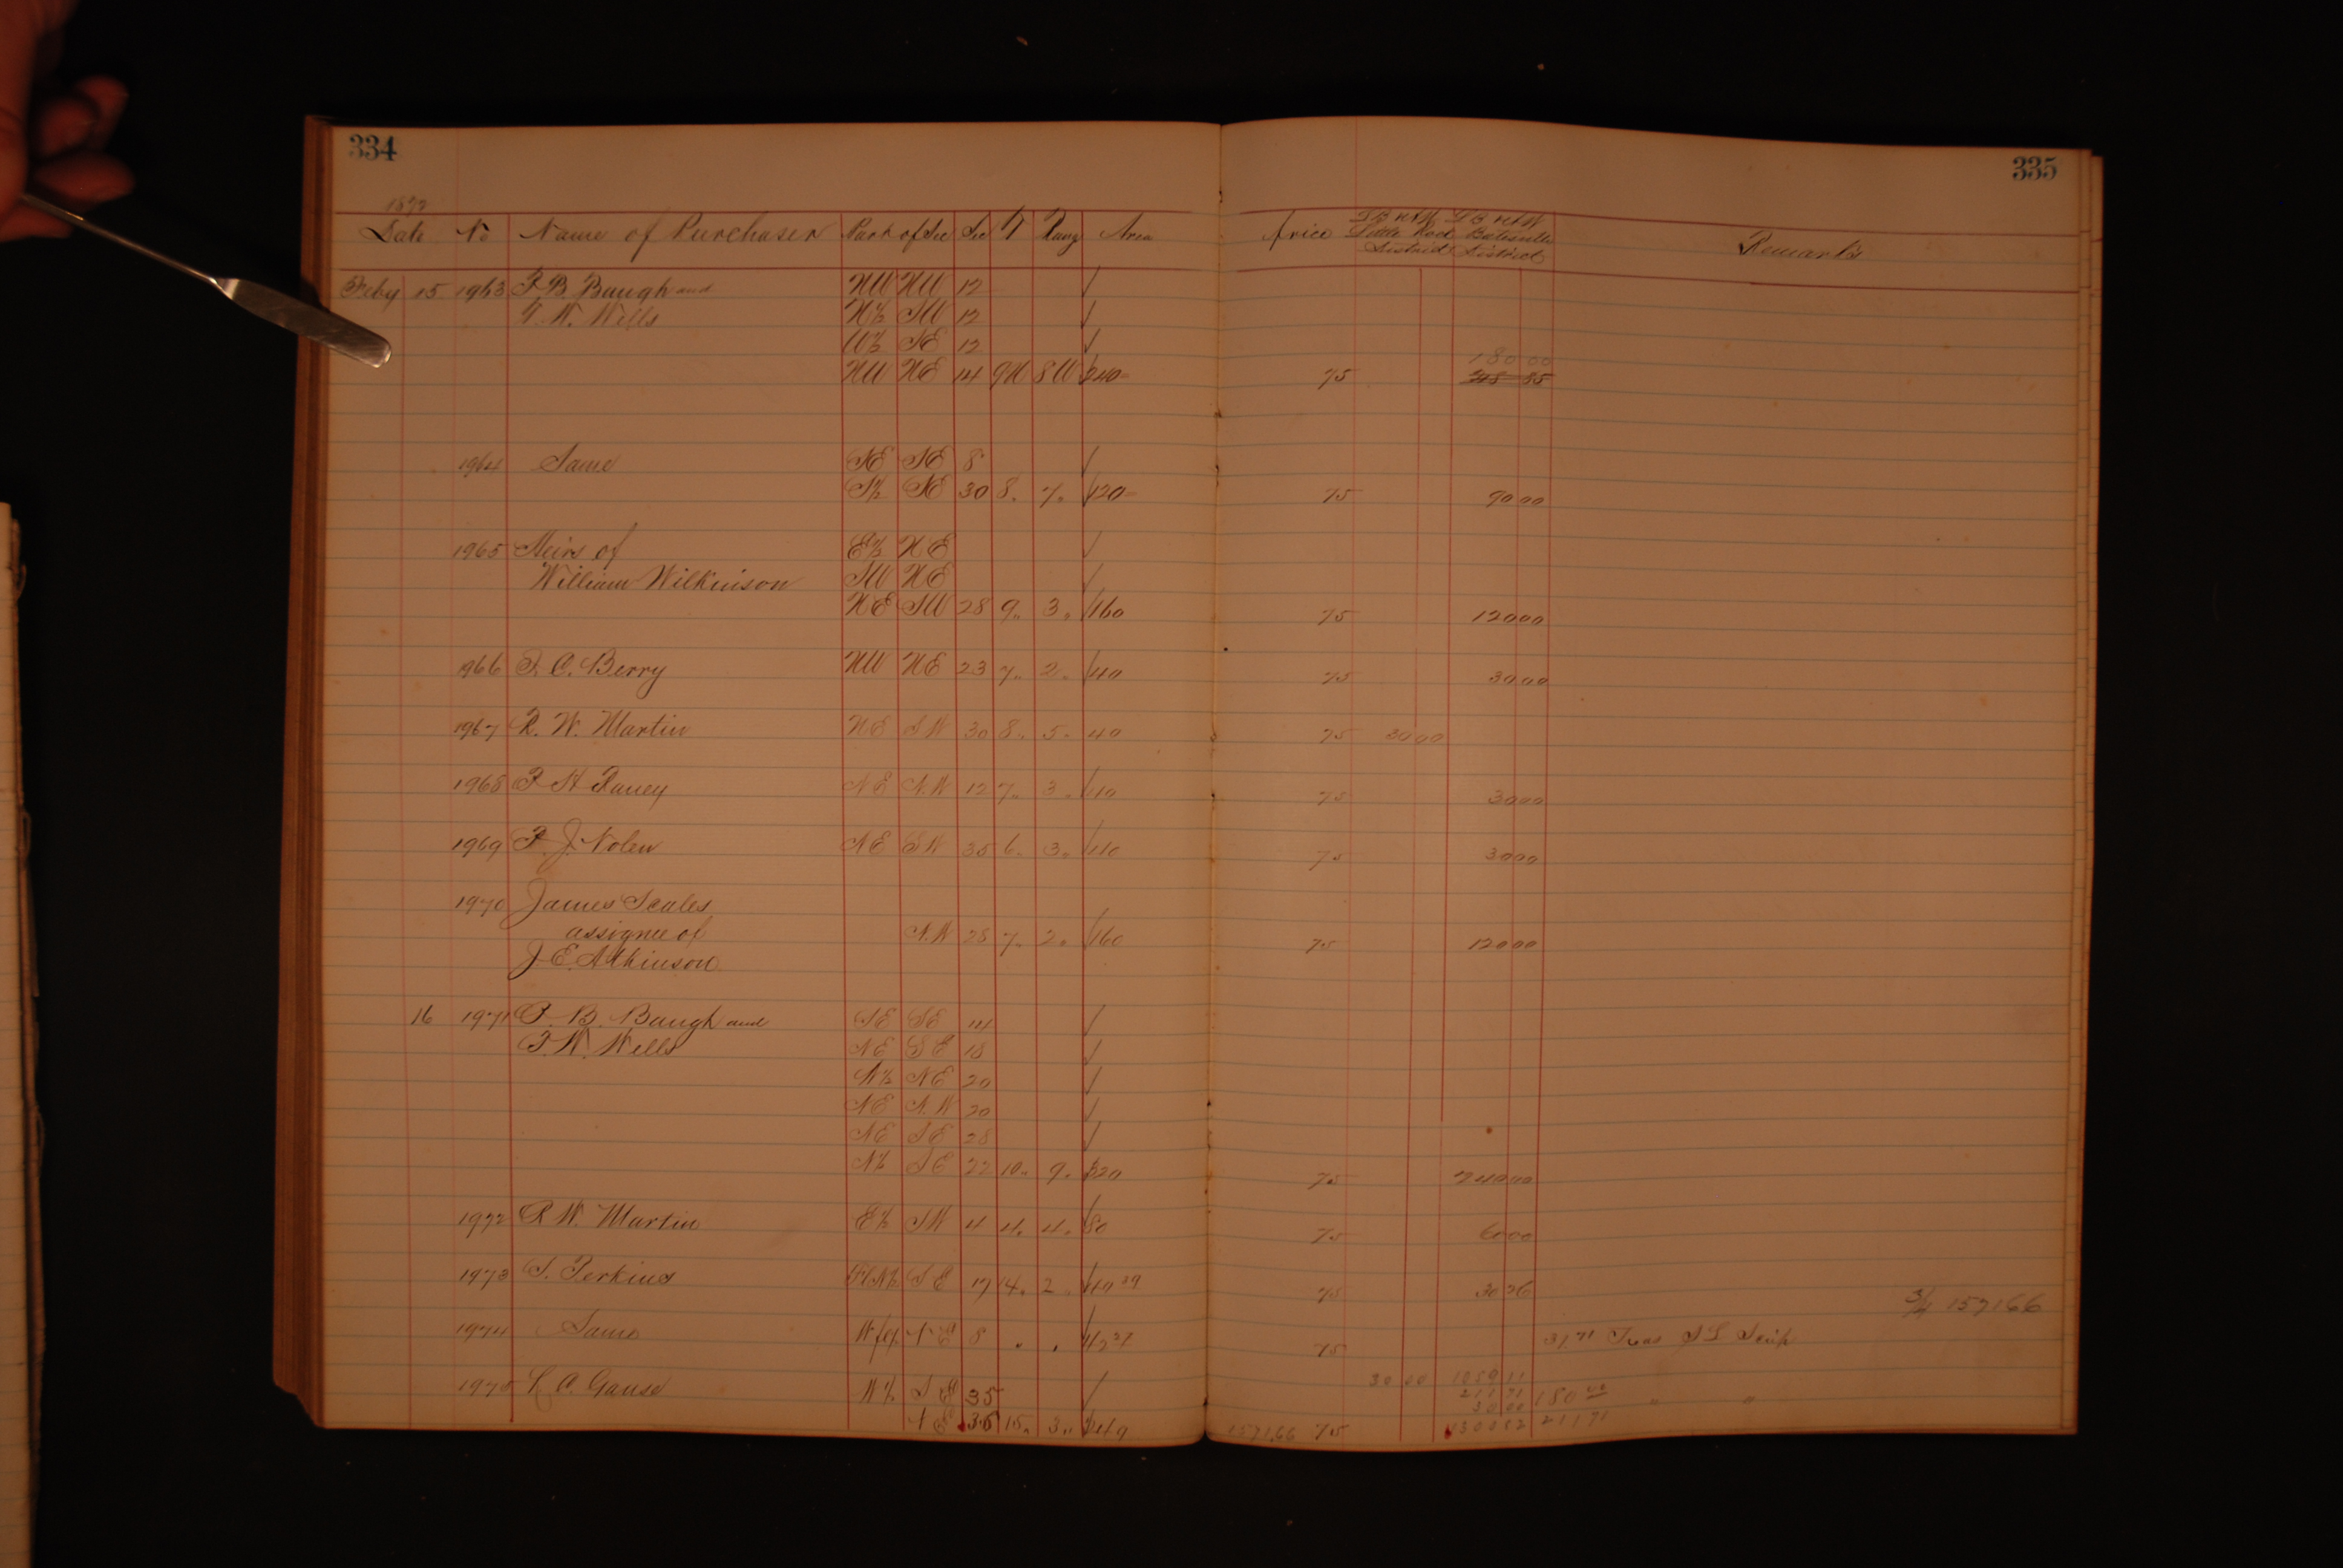 334
335
1872
Date No Name of Purchaser Part of Sec Sec T Rang Area Price Little Rock District Batesville District Remarks
Feby 15 1963 P. B. Baugh and NW NW 12 ✓
T. W. Wells N½ SW 12 ✓
W½ SE 12 ✓
180 00
NW NE 14 9N 8W 240 75
1964 Same SE SE 8 ✓
S½ SE 30 8. 7. 120 75 90 00
1965 Heirs of E½ NE ✓
William Wilkinson SW NE ✓
NE SW 28 9. 3. 160 75 120 00
1966 NW NE 23 7. 2. 40 75 30 00
1967 R. W. Martin NE SW 30 8. 5. 40 75 30 00
1968 NE NW 12 7. 3. 40 75 30 00
1969 J. Nolen NE SW 35 6. 3. 40 75 30 00
1970 James Scales
assignee of NW 28 7. 2. 160 75 120 00
J. E. Atkinson
16 1971 P. B. Baugh and SE SE 14 ✓
T. W. Wells NE SE 18 ✓
N½ NE 20 ✓
NE N.W 20 ✓
NE SE 28 ✓
N½ SE 22 10. 9. 320 75 240 00
1972 R. W. Martin E½ SW 4 4. 4. 80 75 60 00
1973 S. Perkins SE 17 14. 2. 75 30 26
¾ 157166
1974 Same 8 75 31.71
1975 Gause 35 ✓ 30 00 1059 11
211 71 180 00
30 00
36 15. 3. 240 1571.66 75 1300 82 211 71